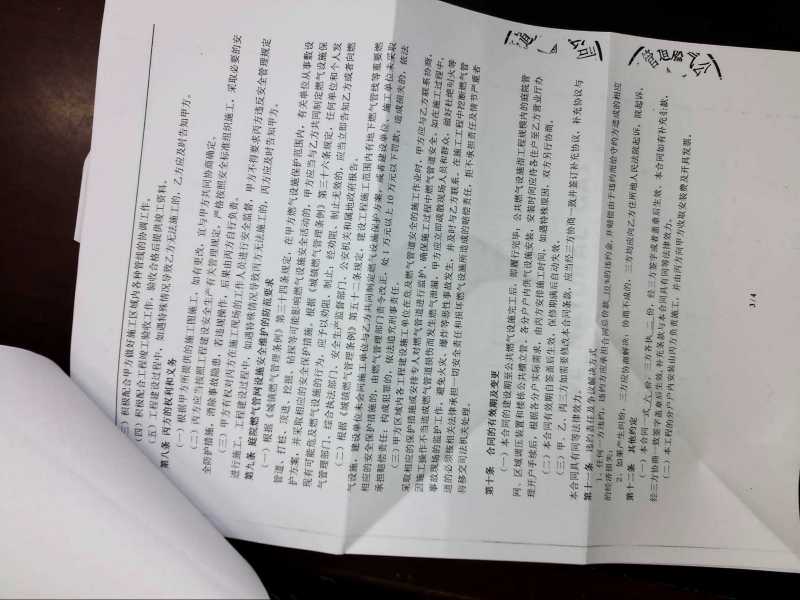 （三）积极配合甲方做好施工区域内各种管线的协调工作。
（四）积极配合工程竣工验收工作，验收合格后提供竣工资料。
（五）工程建设过程中，如遇特殊情况导致乙方无法施工的，乙方应及时告知甲方。
第八条 丙方的权利和义务
（一）根据甲方所提供的施工图施工，如有更改，宜与甲方共同协商确定。
（二）丙方应当按照工程建设安全生产有关管理规定，严格按照安全标准组织施工，采取必要的安
全防护措施，消除事故隐患，若违规操作，后果由丙方自行负责。
（三）甲方有权对丙方在施工现场的工作人员进行安全监督，甲方不得要求丙方违反安全管理规定
进行施工。工程建设过程中，如遇特殊情况导致丙方无法施工的，丙方应及时告知甲方。
第九条 庭院燃气管网设施安全维护的防范要求
（一）根据《城镇燃气管理条例》第三十四条规定，在甲方燃气设施保护范围内，有关单位从事敷设
管道、打桩、顶进、挖掘、钻探等可能影响燃气设施安全活动的，甲方应当与乙方共同制定燃气设施保
护方案，并采取相应的安全保护措施。根据《城镇燃气管理条例》第三十六条规定，任何单位和个人发
现有可能危及燃气设施的行为，应予以劝阻、制止；经劝阻、制止无效的，应当立即告知乙方或者向燃
气管理部门、综合执法部门、安全生产监督部门、公安机关和属地政府报告。
（二）根据《城镇燃气管理条例》第五十二条规定，建设工程施工范围内有地下燃气管线等重要燃
气设施，建设单位未会同施工单位与乙方共同制定燃气设施保护方案，或者建设单位、施工单位未采取
相应的安全保护措施的，由燃气管理部门责令改正，处1万元以上10万元以下罚款；造成损失的，依法
承担赔偿责任；构成犯罪的，依法追究刑事责任。
（三）甲方区域内各工程建设施工单位在危及燃气管道安全的施工作业时，甲方应与乙方联系协商，
采取相应的保护措施或安排专人对燃气管道进行监护，确保施工过程中燃气管道安全。如在施工过程中，
因施工操作不当造成燃气管道损伤而发生燃气泄漏，甲方应立即疏散现场人员和群众，做好杜绝明火等
事故现场的监护工作，避免火灾、爆炸等恶性事故发生，并及时与乙方联系。在施工工程中挖断燃气管
道的必须按相关法律承担一切安全责任和损坏燃气设施所造成的赔偿责任，拒不承担责任及情节严重者
将移交司法机关处理。
第十条 合同的有效期及变更
（一）本合同的建设期至公共燃气设施完工后，即履行完毕，公共燃气设施指工程规模内的庭院管
网、区域调压装置和楼栋公共槽立管，各分户户内供气设施安装，安装时间应待各住户至乙方营业厅办
理开户手续后，根据各分户实际需求，由丙方安排施工时间，如遇特殊原因，双方另行协商。
（二）本合同有效期自签盖后生效，保修期满后自动失效。
（三）甲、乙、丙三方如需要修改本合同条款，应当经三方协商一致并签订补充协议，补充协议与
本合同具有同等法律效力。
第十一条 违约责任及争议解决方式
1、任何一方违约，违约方应承担合同总价款
的违约金，并赔偿由于违约而给守约方造成的相应
的经济损失；
2、如果产生纠纷，三方应协商解决；协商不成的，三方均应向乙方住所地人民法院起诉。
第十二条 其他约定
（一）本合同一式六份，三方各执二份，经三方签字或者盖章后生效。本合同如有补充条款，
经三方协商一致签字盖章后生效，补充条款与本合同具有同等法律效力。
（二）本工程的分户户内安装由丙方负责施工，并由丙方向甲方收取安装费及开具发票。
3/4